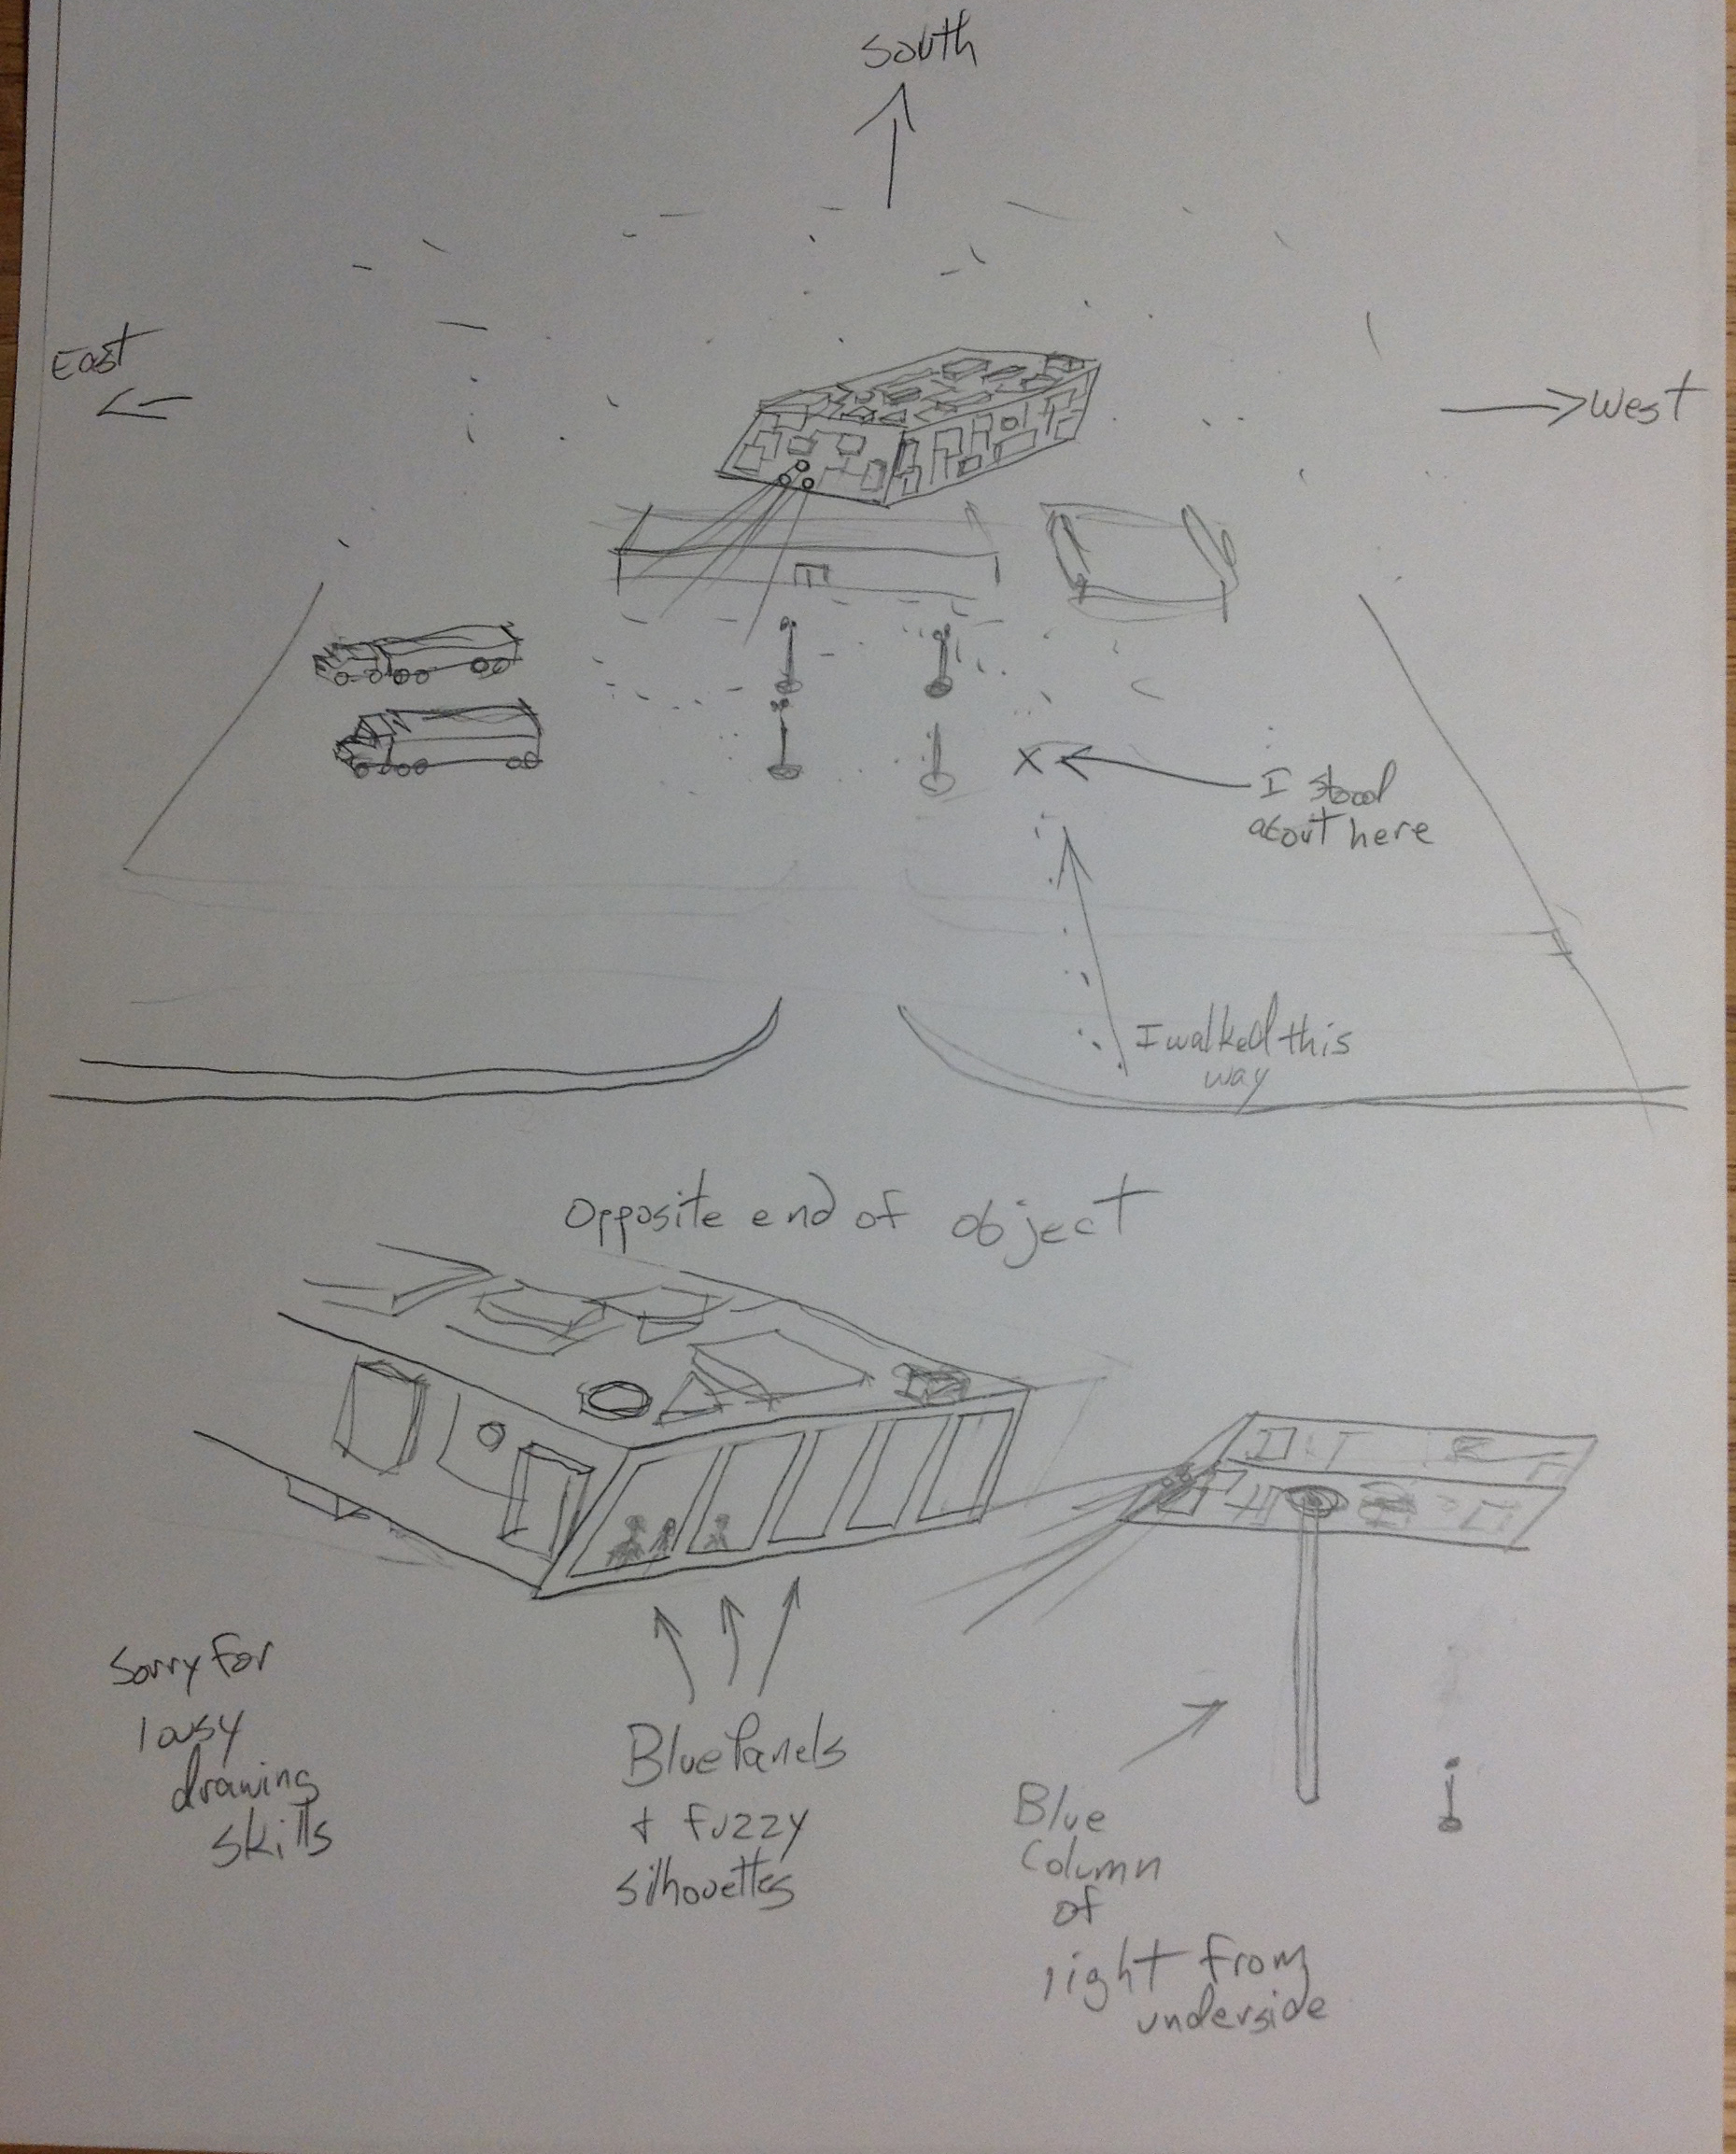 South
East
West
X
I stood
about here
I walked this
way
Opposite end of object
Sorry for
lousy
drawing
skills
Blue Panels
+ fuzzy
silhouettes
Blue
Column
of
light from
underside